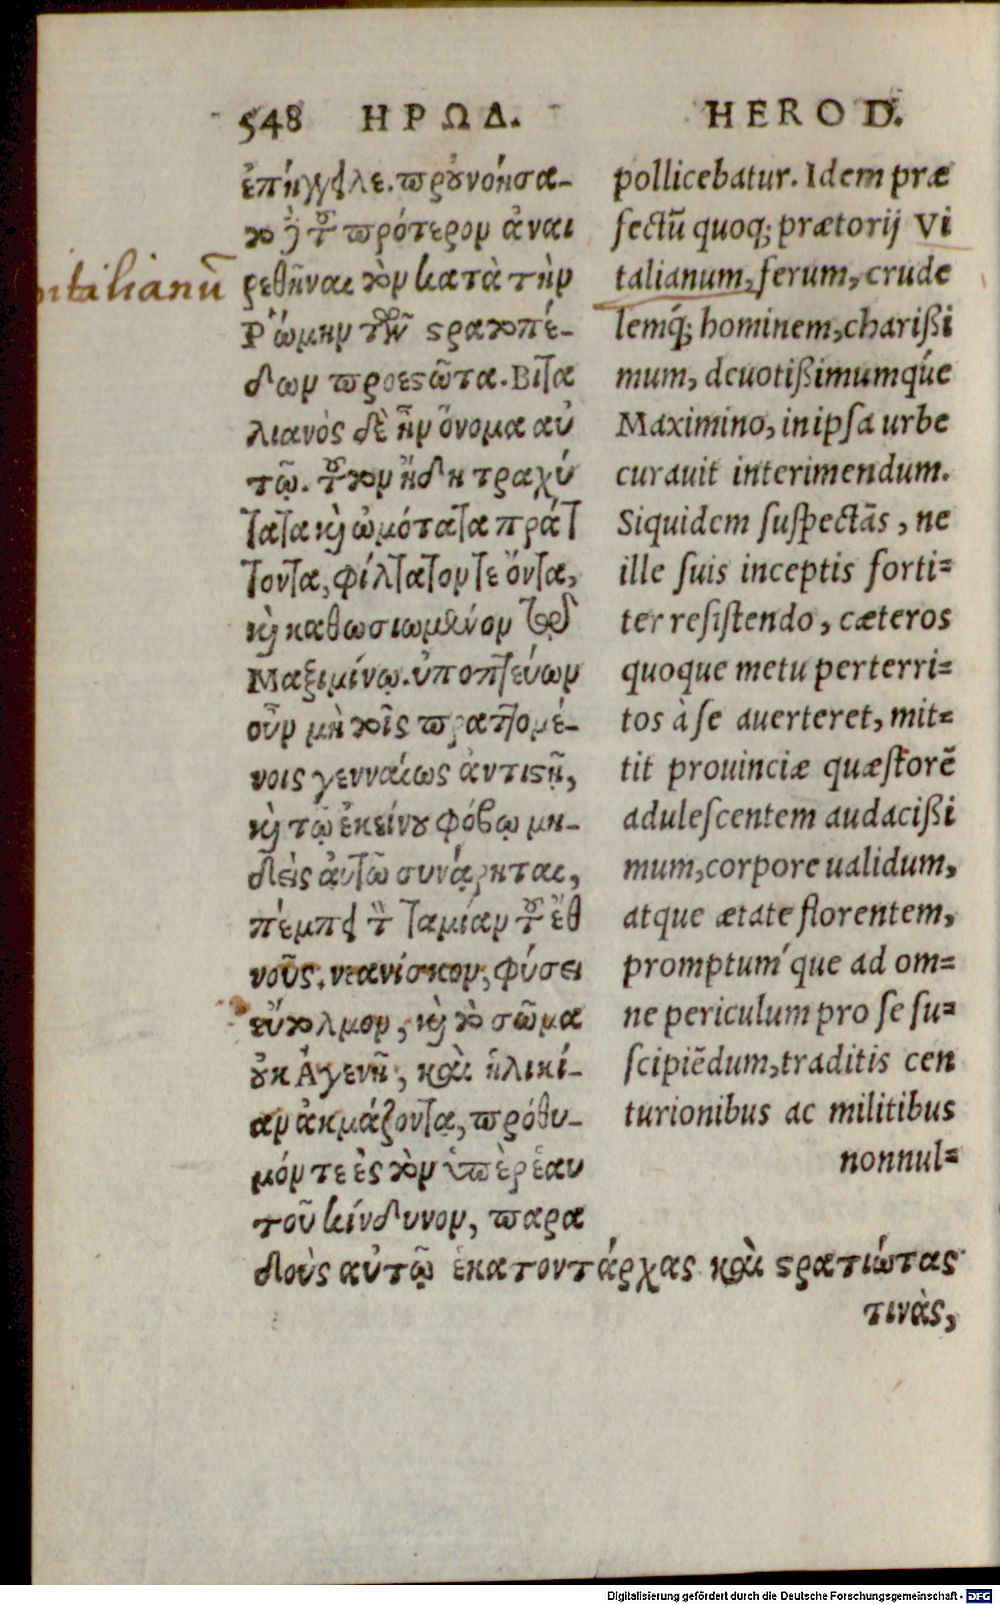 548 ΗΡΩΔ.
ἐπήγγειλε. προυνοήσα-
το δὲ τοῦ πρότερον ἀναι
ρεθῆναι τὸν κατὰ τὴν
Ῥώμην τῶν στρατοπέ-
δων προεστῶτα. Βιτα
λιανὸς δὲ ἦν ὄνομα αὐ
τῷ. τοῦτον ᾔδη τραχύ
τατα καὶ ὠμότατα πράτ
τοντα, φίλτατον τε ὄντα,
καὶ καθωσιωμένον τῷ
Μαξιμίνῳ. ὑποπτεύων
οὖν μὴ τοῖς πραττομέ-
νοις γενναίως ἀντιστῇ,
καὶ τῷ ἐκείνου φόβῳ μη-
δεὶς αὐτῷ συνάρηται,
πέμπει τὸν ταμίαν τοῦ ἔθ
νοῦς, νεανίσκον, φύσει
εὔτολμον, καὶ τὸ σῶμα
οὐκ ἀγενῆ, καὶ ἡλικί-
αν ἀκμάζοντα, πρόθυ-
μόν τε ἐς τὸν ὑπὲρ ἑαυ
τοῦ κίνδυνον, παρα
δοὺς αὐτῷ ἑκατοντάρχας καὶ στρατιώτας
τινὰς,
HEROD.
pollicebatur. Idem præ
fectũ quoq; prætorij Vi
talianum, ferum, crude
lemq́; hominem, charißi
mum, deuotißimumq́ue
Maximino, in ipsa urbe
curauit interimendum.
Siquidem suspectãs, ne
ille suis inceptis forti=
ter resistendo, cæteros
quoque metu perterri=
tos à se auerteret, mit=
tit prouinciæ quæstorẽ
adulescentem audacißi
mum, corpore ualidum,
atque ætate florentem,
promptuḿque ad om=
ne periculum pro se su=
scipiẽdum, traditis cen
turionibus ac militibus
nonnul=
vitalianũ
Digitalisierung gefördert durch die Deutsche Forschungsgemeinschaft - DFG